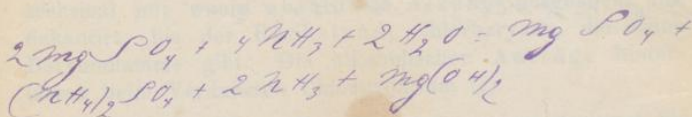 2mgSO₄ + 4NH₃ + 2H₂O = mg SO₄ +
(nH₄)₂SO₄ + 2NH₃ + mg(OH)₂